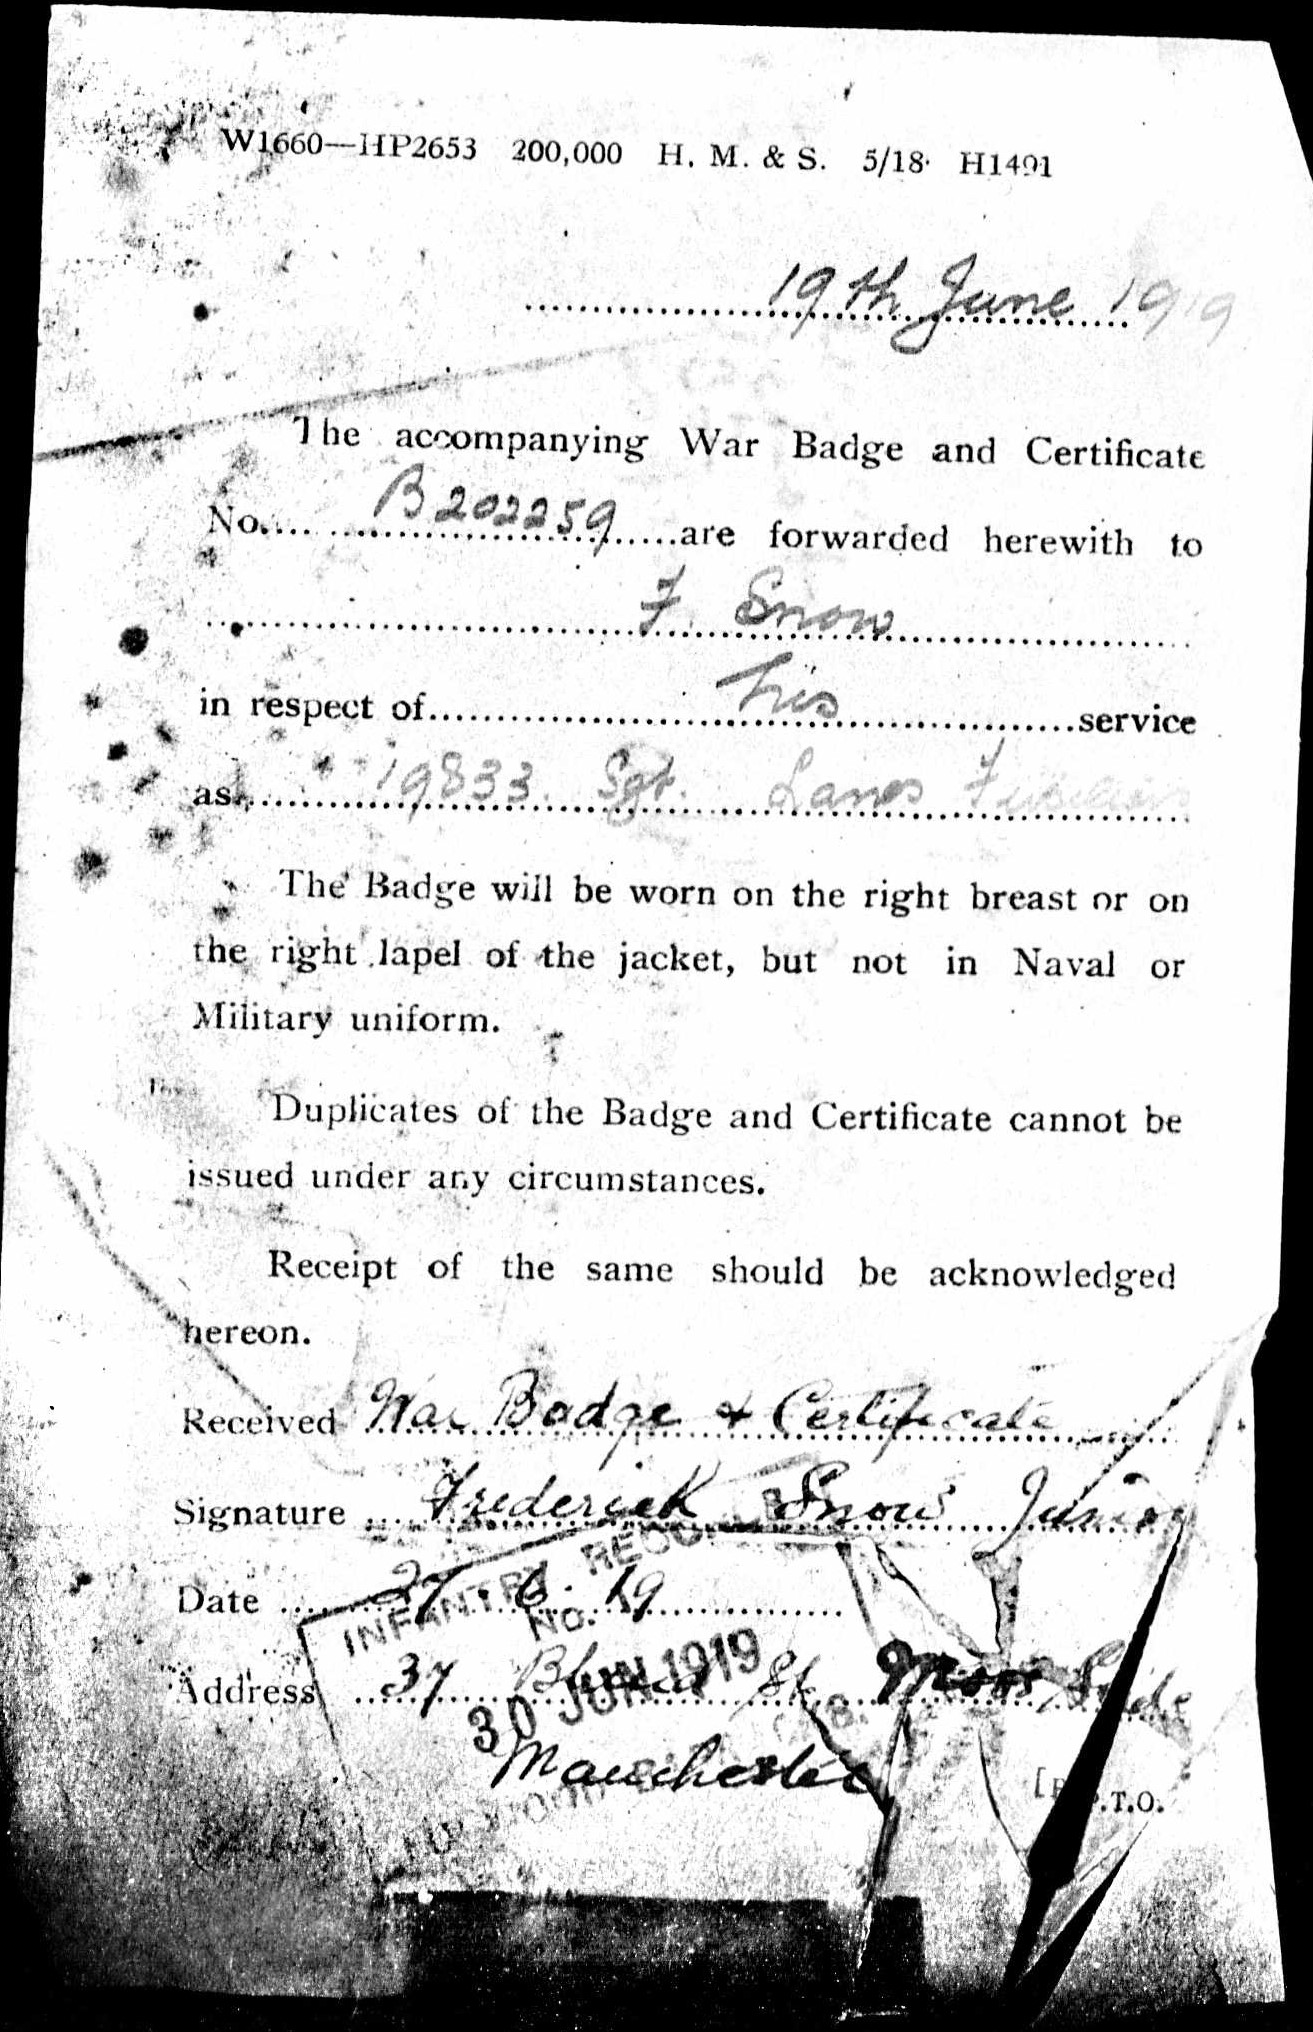 W1660—HP2653 200,000 H. M. & S. 5/18. H1491
19th June 1919
The accompanying War Badge and Certificate
No. B202259 are forwarded herewith to
F. Snow
in respect of his service
as 19833. Sgt. Lancs Fusiliers
The Badge will be worn on the right breast or on
the right lapel of the jacket, but not in Naval or
Military uniform.
Duplicates of the Badge and Certificate cannot be
issued under any circumstances.
Receipt of the same should be acknowledged
hereon.
Received War Badge & Certificate
Signature Frederick Snow Junior
Date 27. 6. 19
INFANTRY RECO
NO.
Address 37 St. Moss Side
30 JUN 1919
Manchester
.T.O.